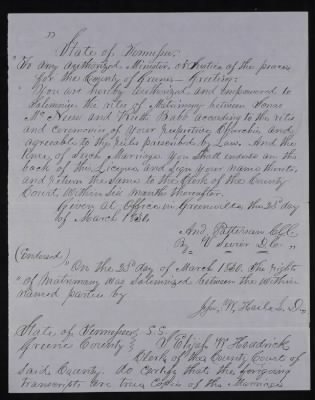 "
State of Tennessee.
"To any authorized Minister, or Justice of the peace
for the County of Greene — Greeting:
You are hereby Authorized and empowered to
Solemnize the rites of Matrimony between Jonas
Mc Neese and Ruth Babb according to the rites
and ceremonies of your respective Churches, and
agreeable to the rules prescribed by Law. And the
Rites of Such Marriage You shall endorse on the
back of the License and Sign your name thereto,
and return the same to the Clerk of the County
Court within Six months thereafter.
Given at Office in Greeneville, the 25 day
of March 1830.
And. Patterson Clk
By V Sevier D.C. "
(Endorsed) "On the 25 day of March 1830. The rights
"of Matrimony was Solemnized between the within
named parties by
W, Haile J. P.
State of Tennessee, S.S.
Greene County I Elijah W Headrick
Clerk of the County Court of
Said County. do Certify that the foregoing
transcripts are true Copies of the Marriage